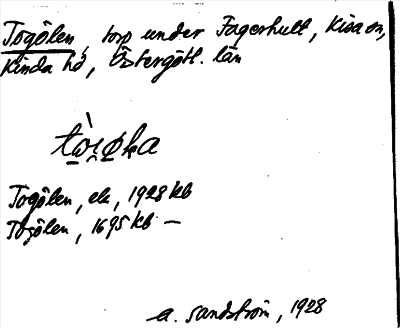 Togölen, torp under Fagerhult, Kisa sn,
Kinda hd, Östergötl. län
Togölen, ek, 1928 kb
Togölen, 1695 kb —
A. Sandström, 1928